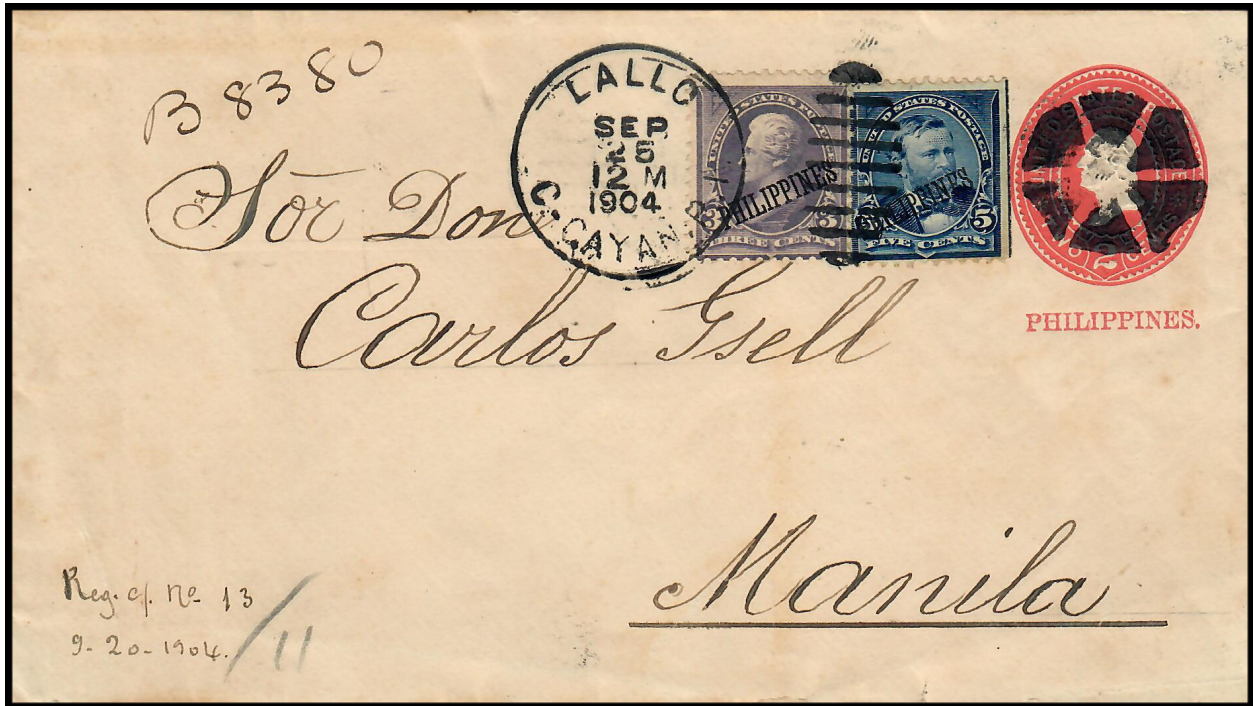 B 8380
LALLO
SEP
5
12 M
1904
CAGAYAN, P.I.
UNITED STATES POSTAGE
PHILIPPINES
3 3
THREE CENTS
UNITED STATES POSTAGE
PHILIPPINES
5
FIVE CENTS
UNITED STATES POSTAGE
2
PHILIPPINES.
Sör Don
Carlos Gsell
Manila
Reg. cf. No 13
9-20-1904.
/11